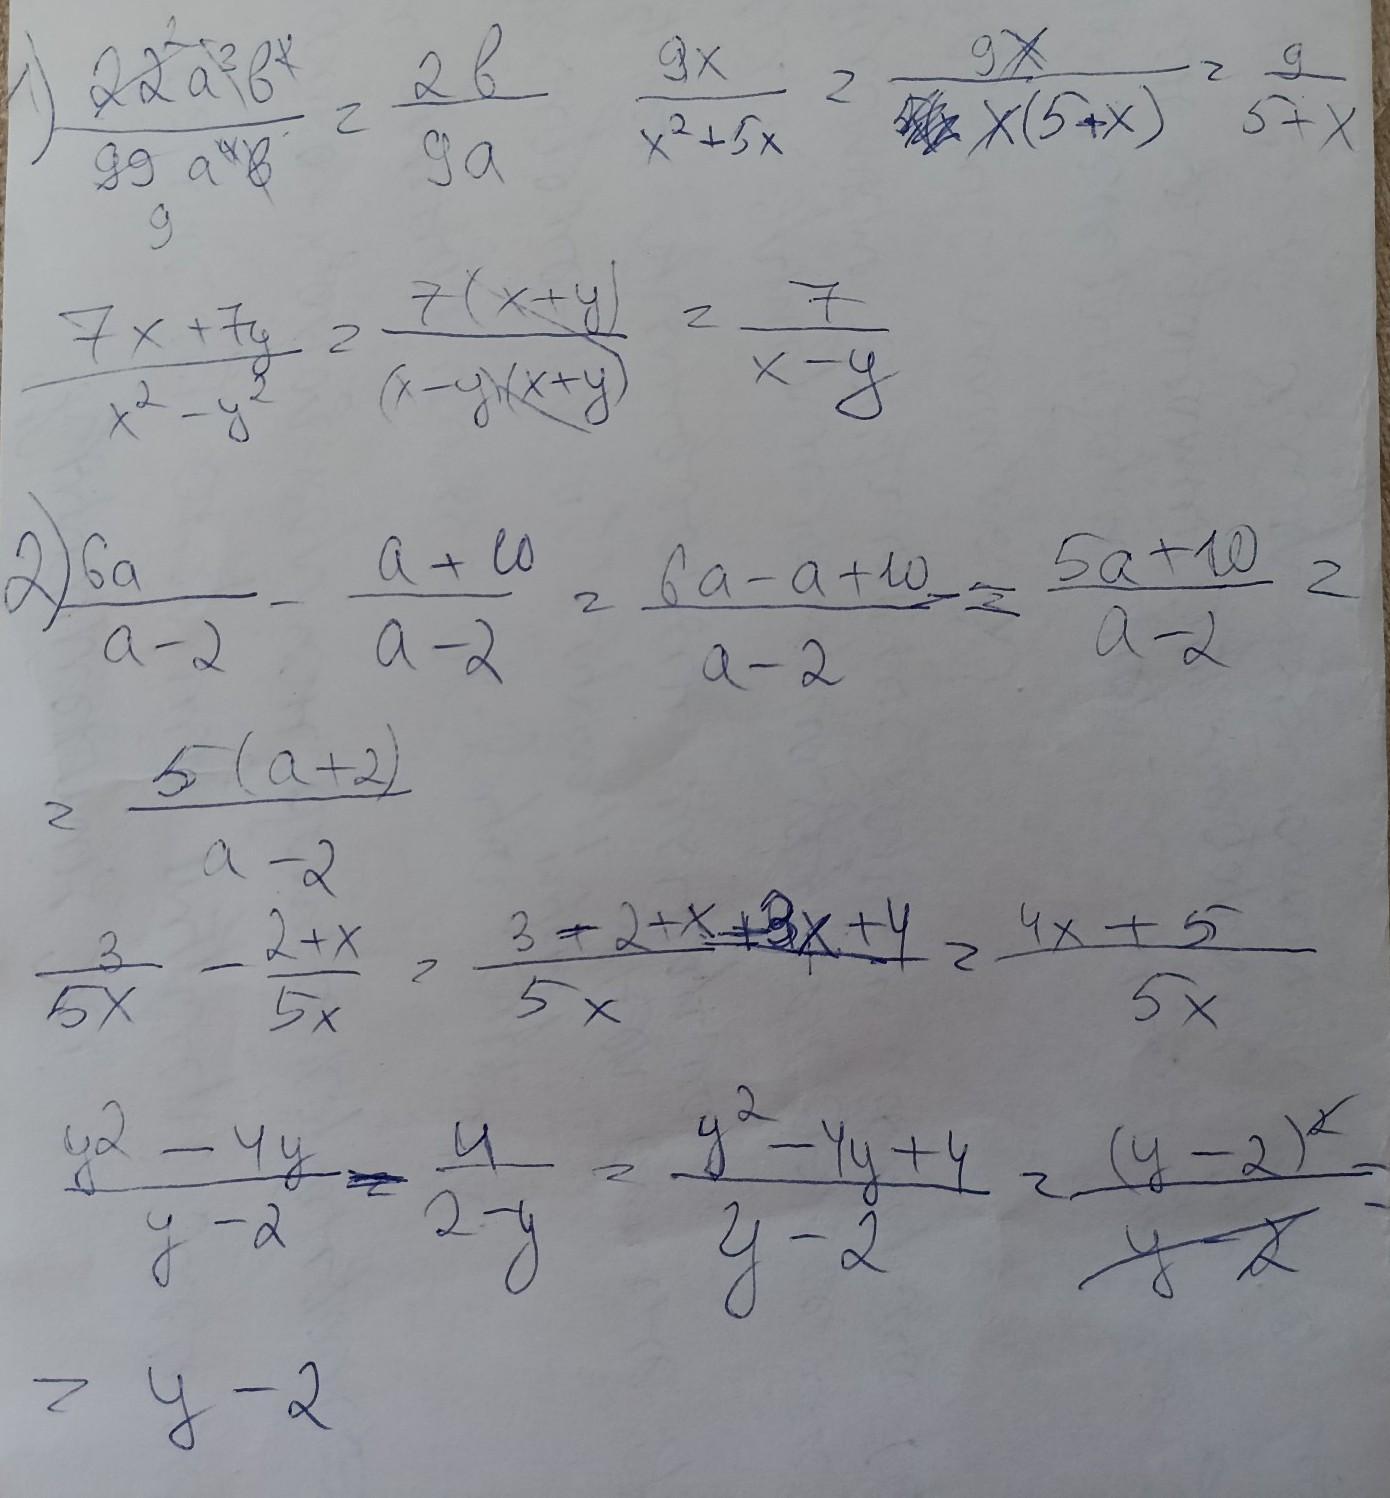 1) 22a³b² / 99a⁴b = 2b / 9a   9x / x²+5x = 9x / x(5+x) = 9 / 5+x
7x+7y / x²-y² = 7(x+y) / (x-y)(x+y) = 7 / x-y
2) 6a / a-2 - a+10 / a-2 = 6a-a+10 / a-2 = 5a+10 / a-2 =
= 5(a+2) / a-2
3 / 5x - 2+x / 5x = 3-2+x+3x+4 / 5x = 4x+5 / 5x
y²-4y / y-2 - 4 / 2-y = y²-4y+4 / y-2 = (y-2)² / y-2 =
= y-2